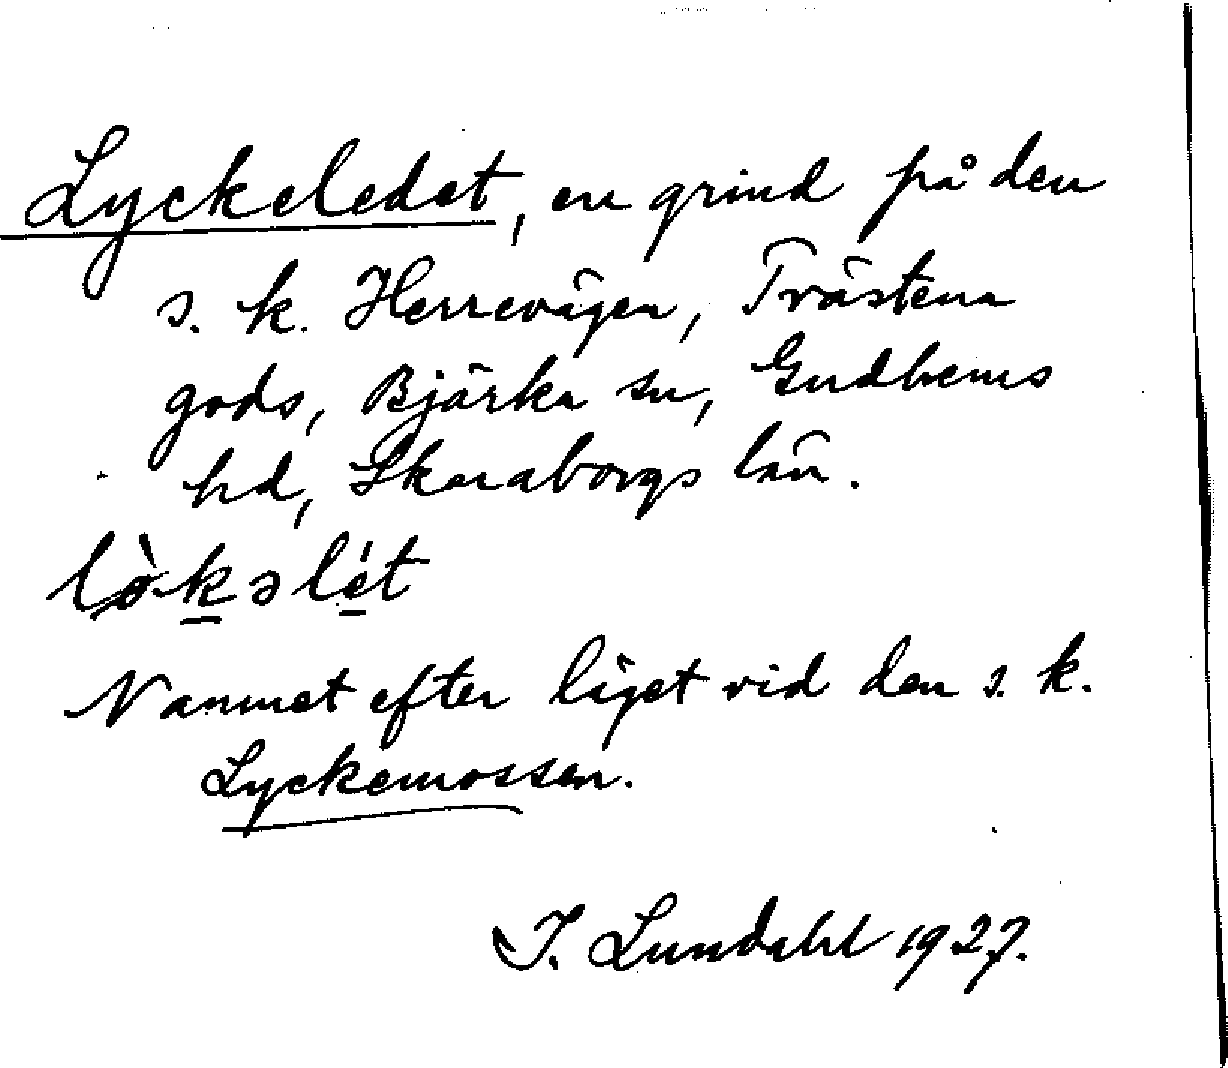 Lyckeledet, en grind på den
s. k. Herrevägen, Trästena
gods, Bjärka sn, Gudhems
hd, Skaraborgs län.
lø̀kəlét
Namnet efter läget vid den s. k.
Lyckemossen.
I. Lundahl 1927.